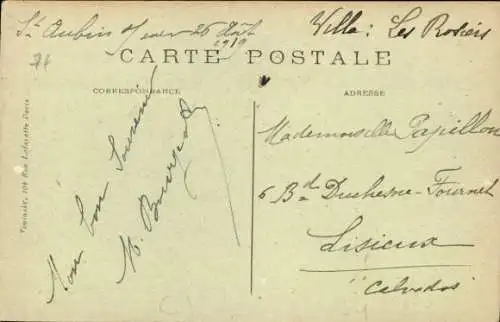 St Aubin s/mer 26 Août 1919
Villa: Les Rosiers
CARTE POSTALE
CORRESPONDANCE
ADRESSE
Mon bon Souvenir
M. Bourgeois
Mademoiselle Papillon
6 Bd Duchesne-Fournet
Lisieux
Calvados
Rue Lafayette Paris